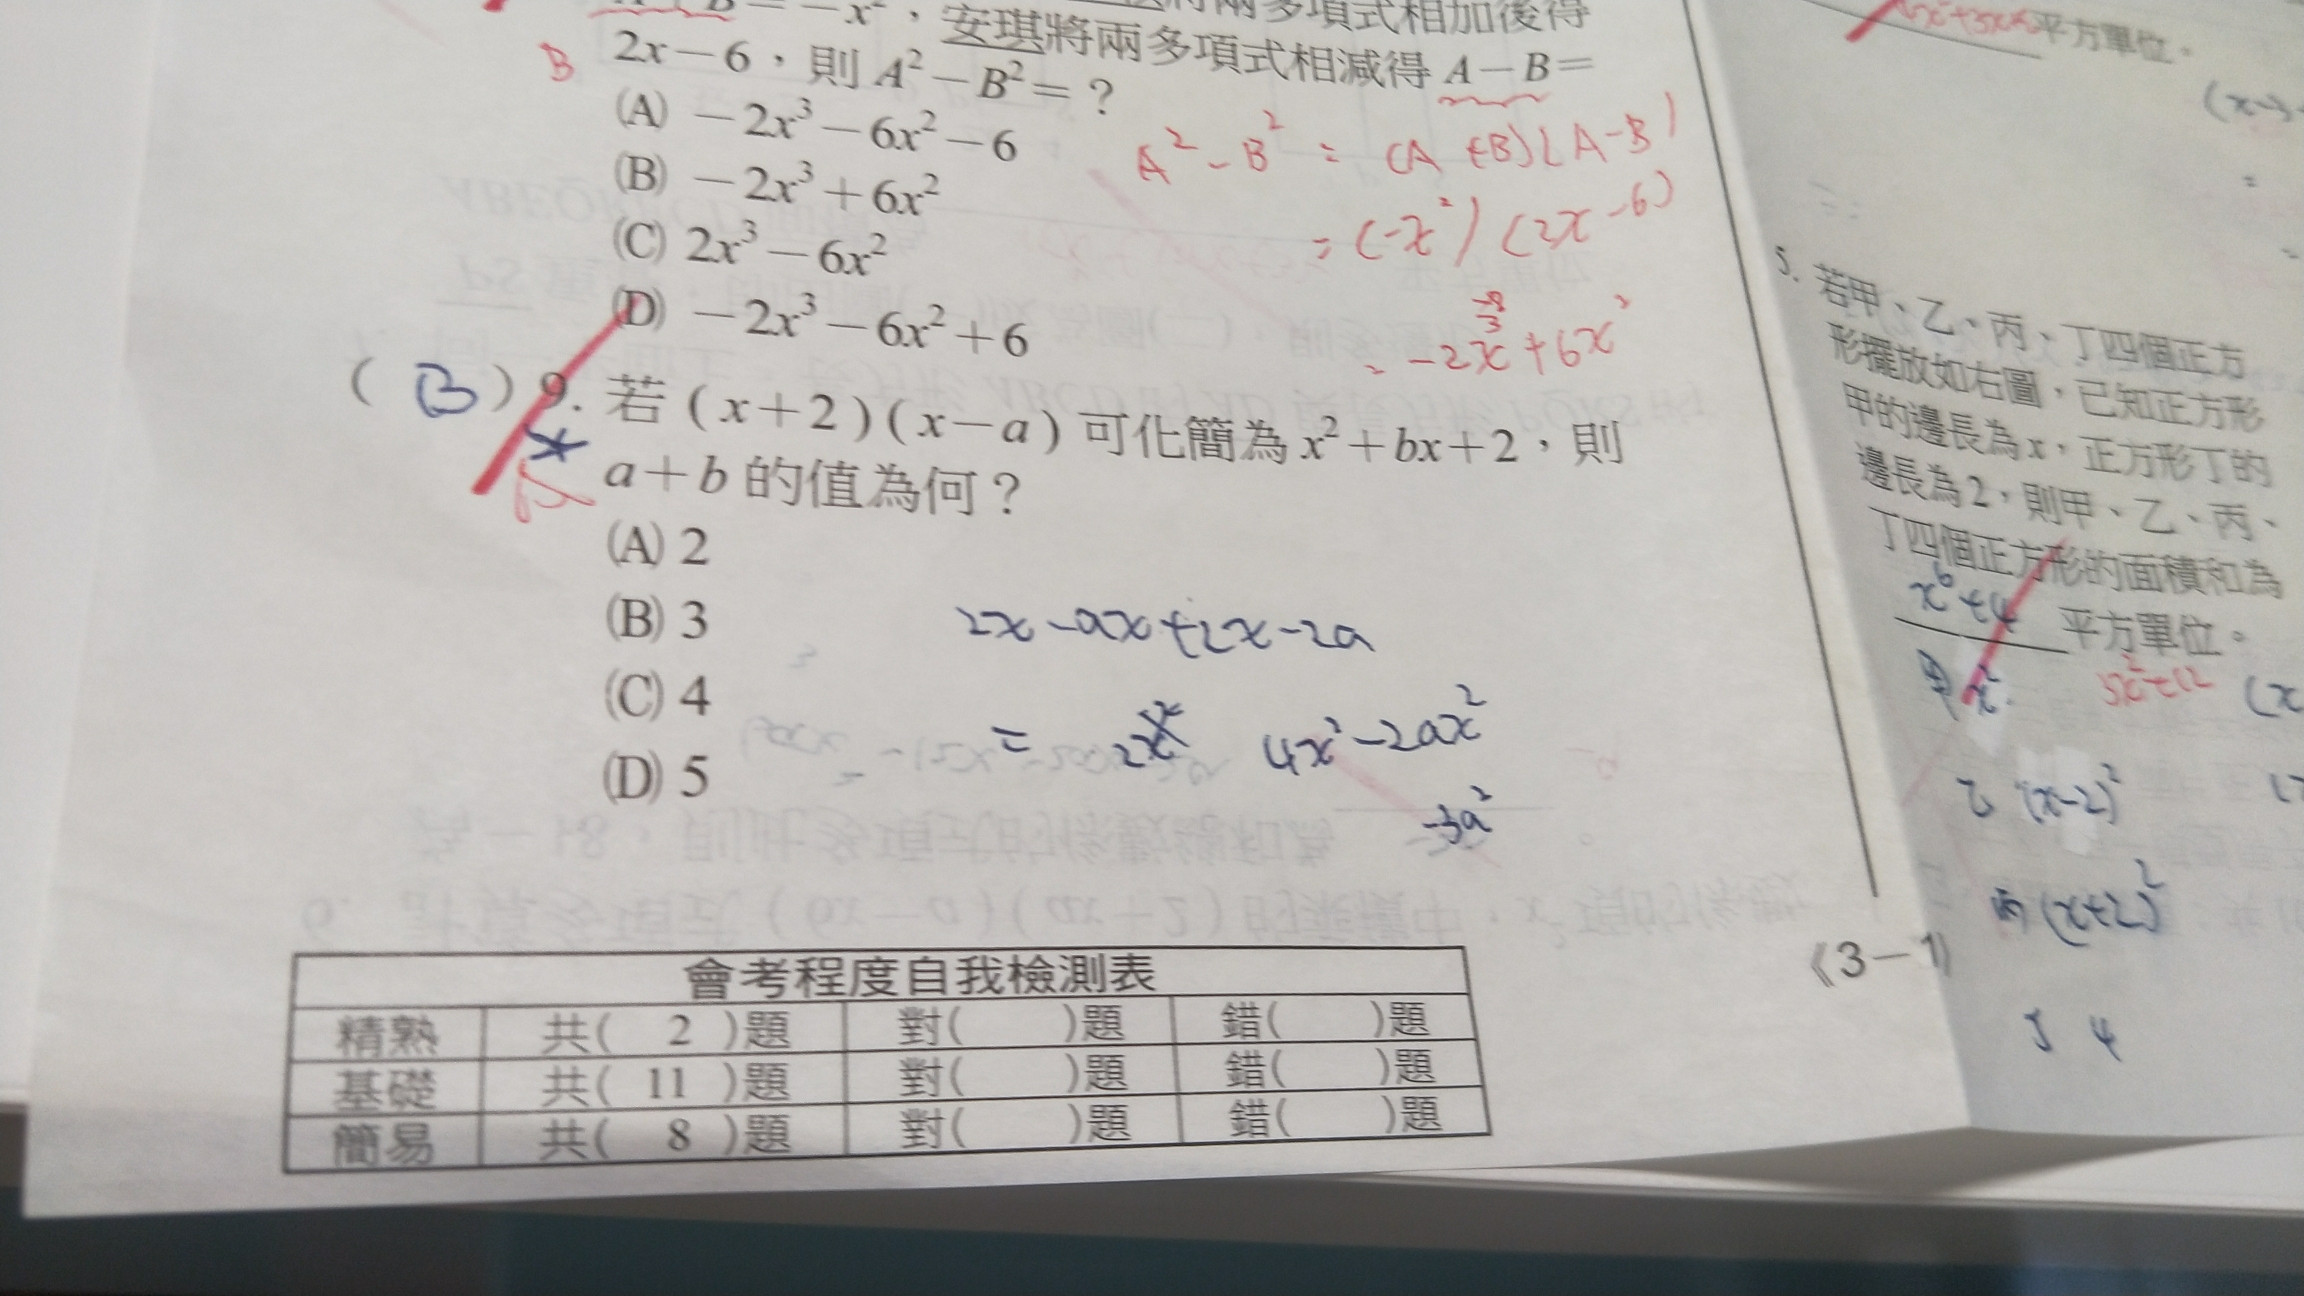 B = -x²，安琪將兩多項式相減得 A-B=
2x-6，則 A²-B²=？
B
(A) -2x³-6x²-6
(B) -2x³+6x²
(C) 2x³-6x²
(D) -2x³-6x²+6
A²-B² = (A+B)(A-B)
= (-x²)(2x-6)
= -2x³+6x²
( B ) 9. 若(x+2)(x-a)可化簡為x²+bx+2，則
a+b的值為何？
A
(A) 2
(B) 3
(C) 4
(D) 5
2x-ax+2x-2a
= 4x²-2ax²
-3a²
會考程度自我檢測表
精熟 共( 2 )題 對( )題 錯( )題
基礎 共( 11 )題 對( )題 錯( )題
簡易 共( 8 )題 對( )題 錯( )題
《3-1》
平方單位。
5. 若甲、乙、丙、丁四個正方
形擺放如右圖，已知正方形
甲的邊長為x，正方形丁的
邊長為2，則甲、乙、丙、
丁四個正方形的面積和為
x⁶+4 平方單位。
3x²+12
甲 x²
乙 (x-2)²
丙 (x+2)²
丁 4